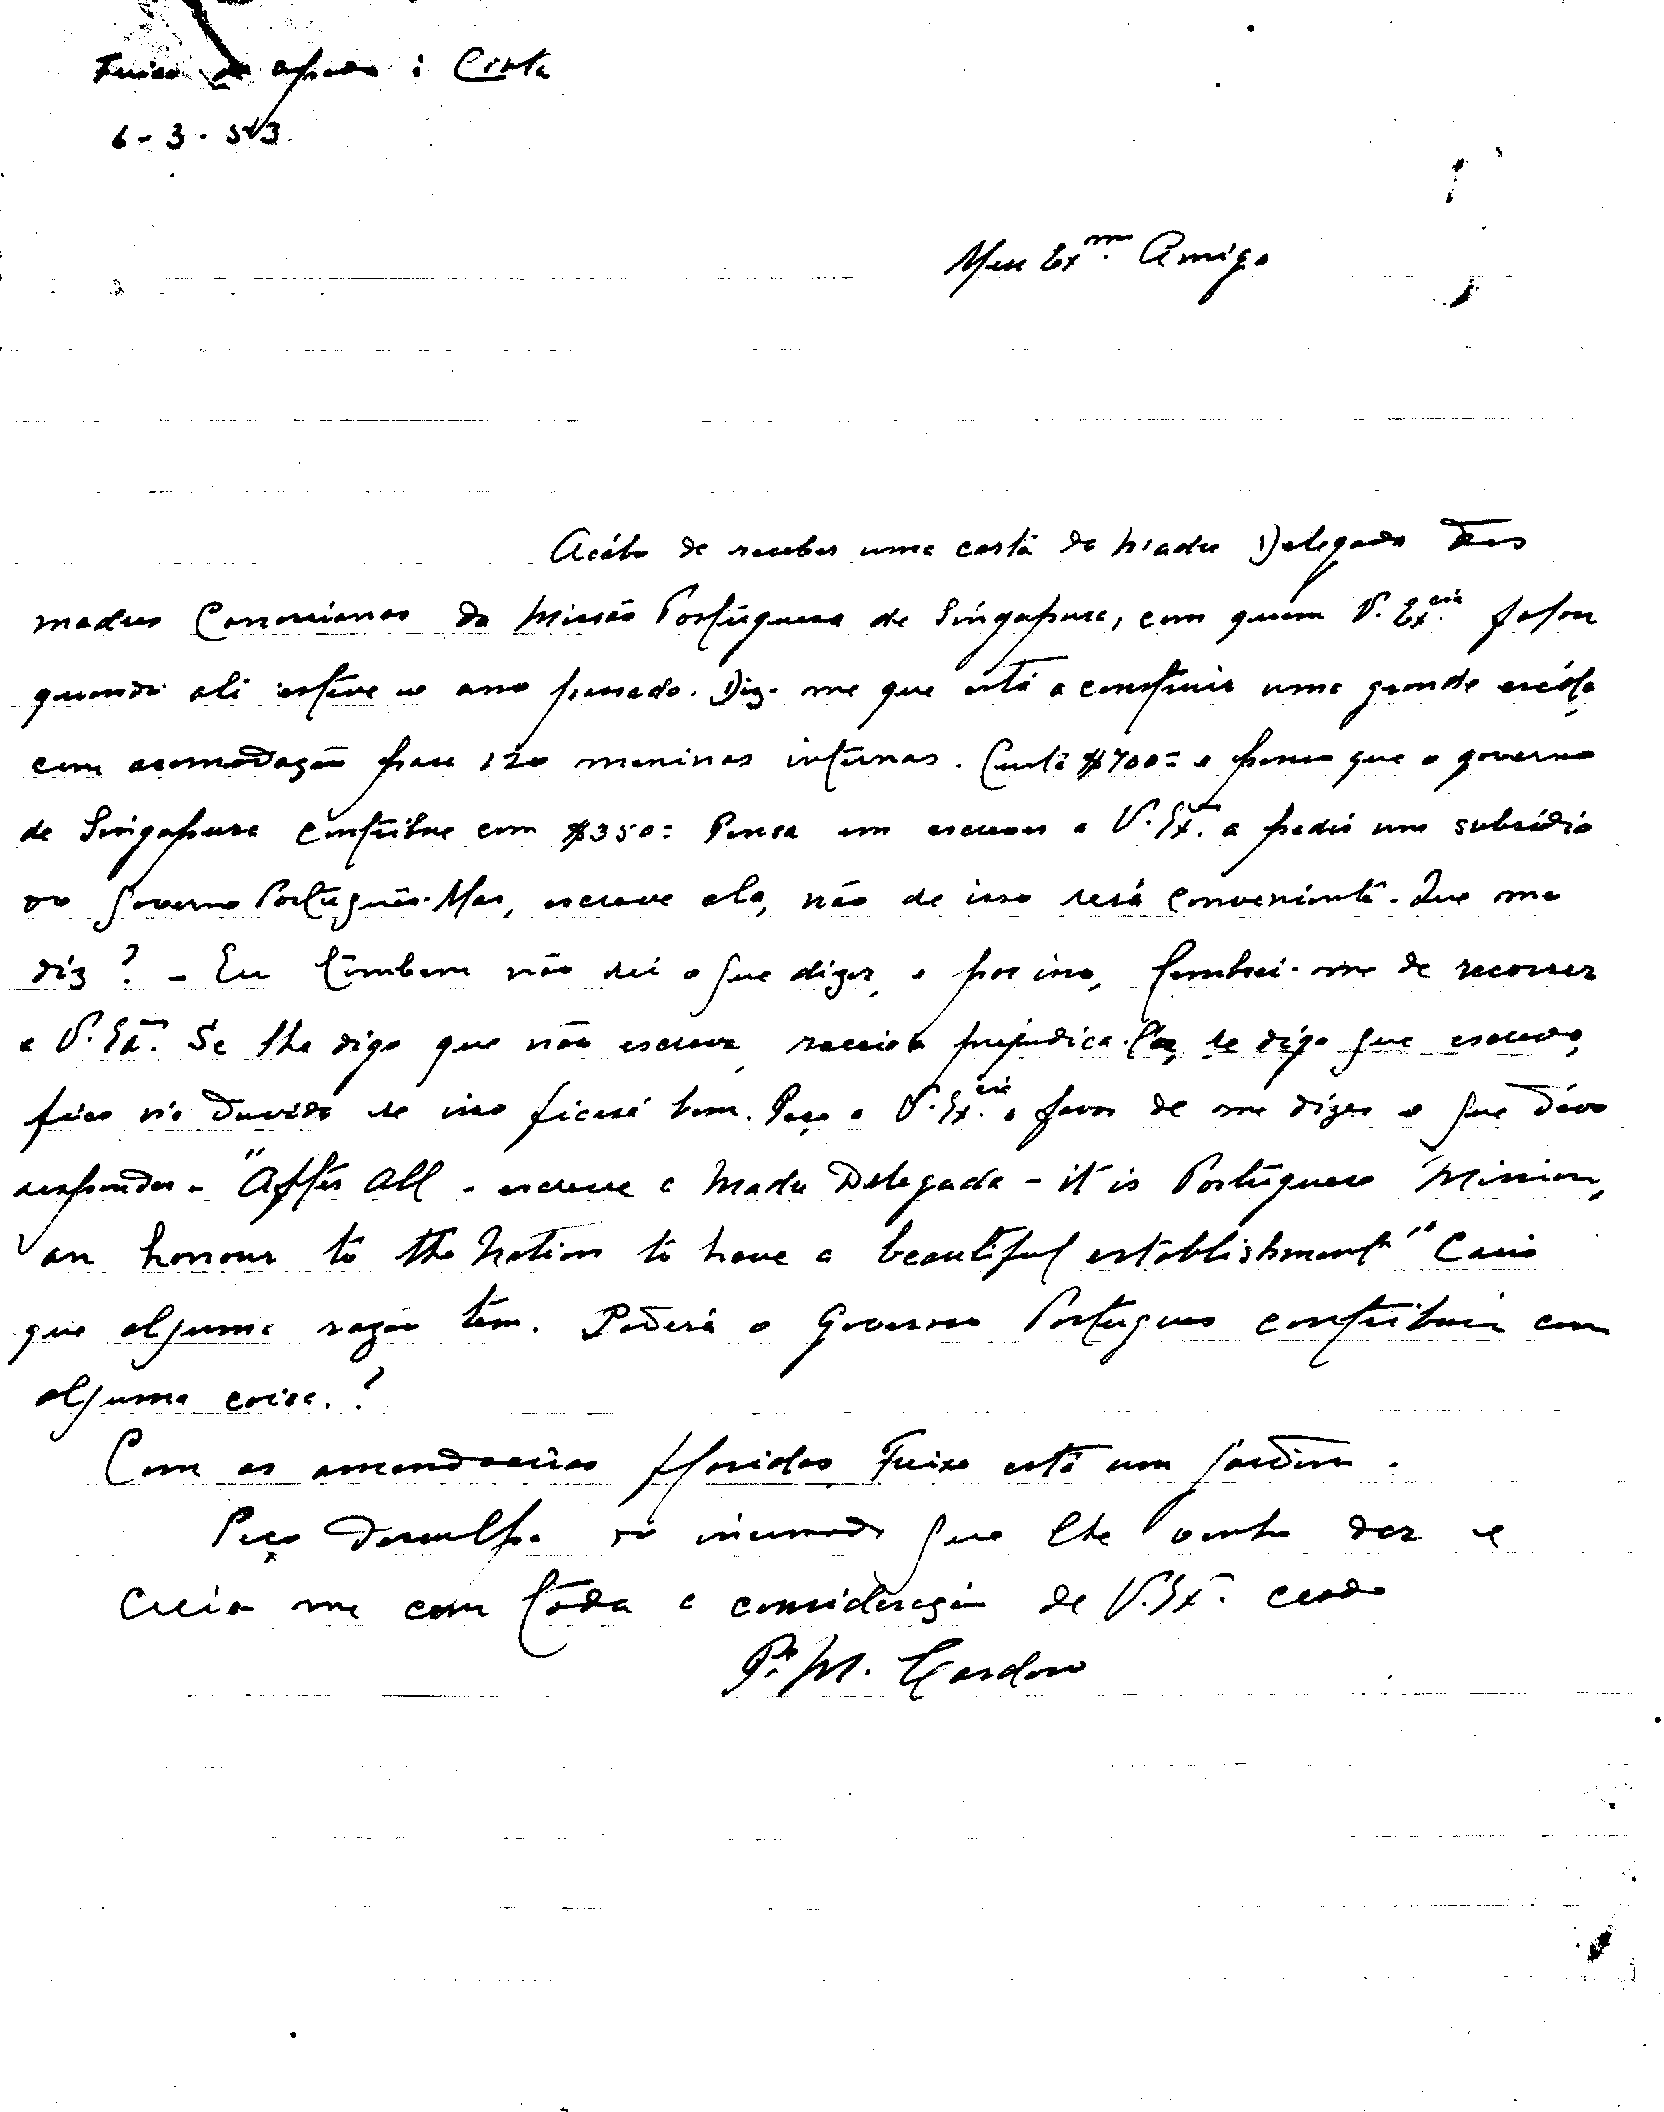 Freixo de Espada à Cinta
6-3-53
Meu Exmo. Amigo
Acábo de receber uma carta da Madre Delegada das
madres Canossianas da Missão Portuguesa de Singapura, com quem V. Excia. falou
quando ali esteve o ano passado. Diz-me que está a construir uma grande escóla
com acomodação para 120 meninas internas. Custa $700= e pensa que o governo
de Singapura contribue com $350= Pensa em escrever a V. Exa. a pedir um subsídio
ao Governo Português. Mas, escreve ela, não sei se isso será conveniente. Que me
diz? - Eu tambem não sei o que dizer, e por isso, lembrei-me de recorrer
a V. Exa. Se lhe digo que não escreva, receio prejudica-la, se digo que escreva,
fico na duvida se isso ficará bem. Peço a V. Excia. o favor de me dizer o que dévo
responder - "After all - escreve a Madre Delegada - it is Portuguese Mission,
an honour to the Nation to have a beautiful establishment" Creio
que alguma razão tem. Poderá o Governo Portugues contribuir com
alguma coisa.?
Com as amendoeiras floridas Freixo está um jardim.
Peço desculpa do incomodo que lhe venho dar e
creia me com toda a consideração de V. Exa. crdo
Pe. M. Cardoso